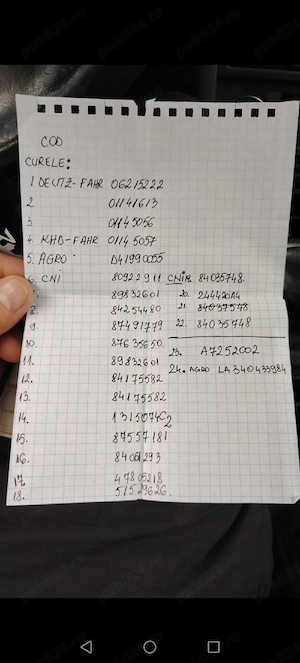 COD
CURELE:
1 DEUTZ-FAHR 06215222
2 01141613
3 01145056
4. KHD-FAHR 01145057
5. AGRO D41990055
6. CNI 80922911
7. 89832601
8. 84254480
9. 87491779
10. 87635650.
11. 89832601
12. 84175582
13. 84175582
14. 1315074C2
15. 87557181
16. 84061293
17. 47805218
18. 51529626.
CNIR 84035748.
20. 24442014
21. 84037578
22. 84035748
23. A7252002
24. AGRO LA 340433984